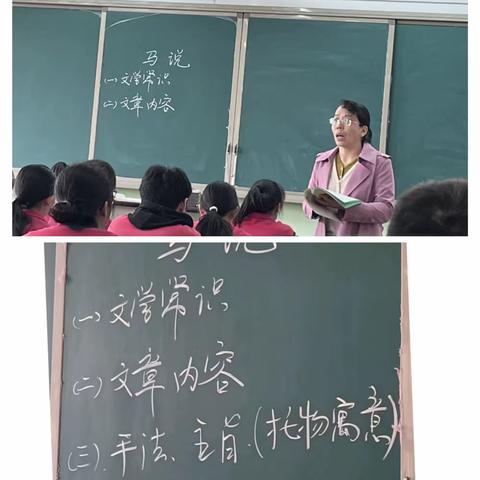 马说
(一)文学常识
(二)文章内容
马说
(一)文学常识
(二)文章内容
(三).手法、主旨.(托物寓意)